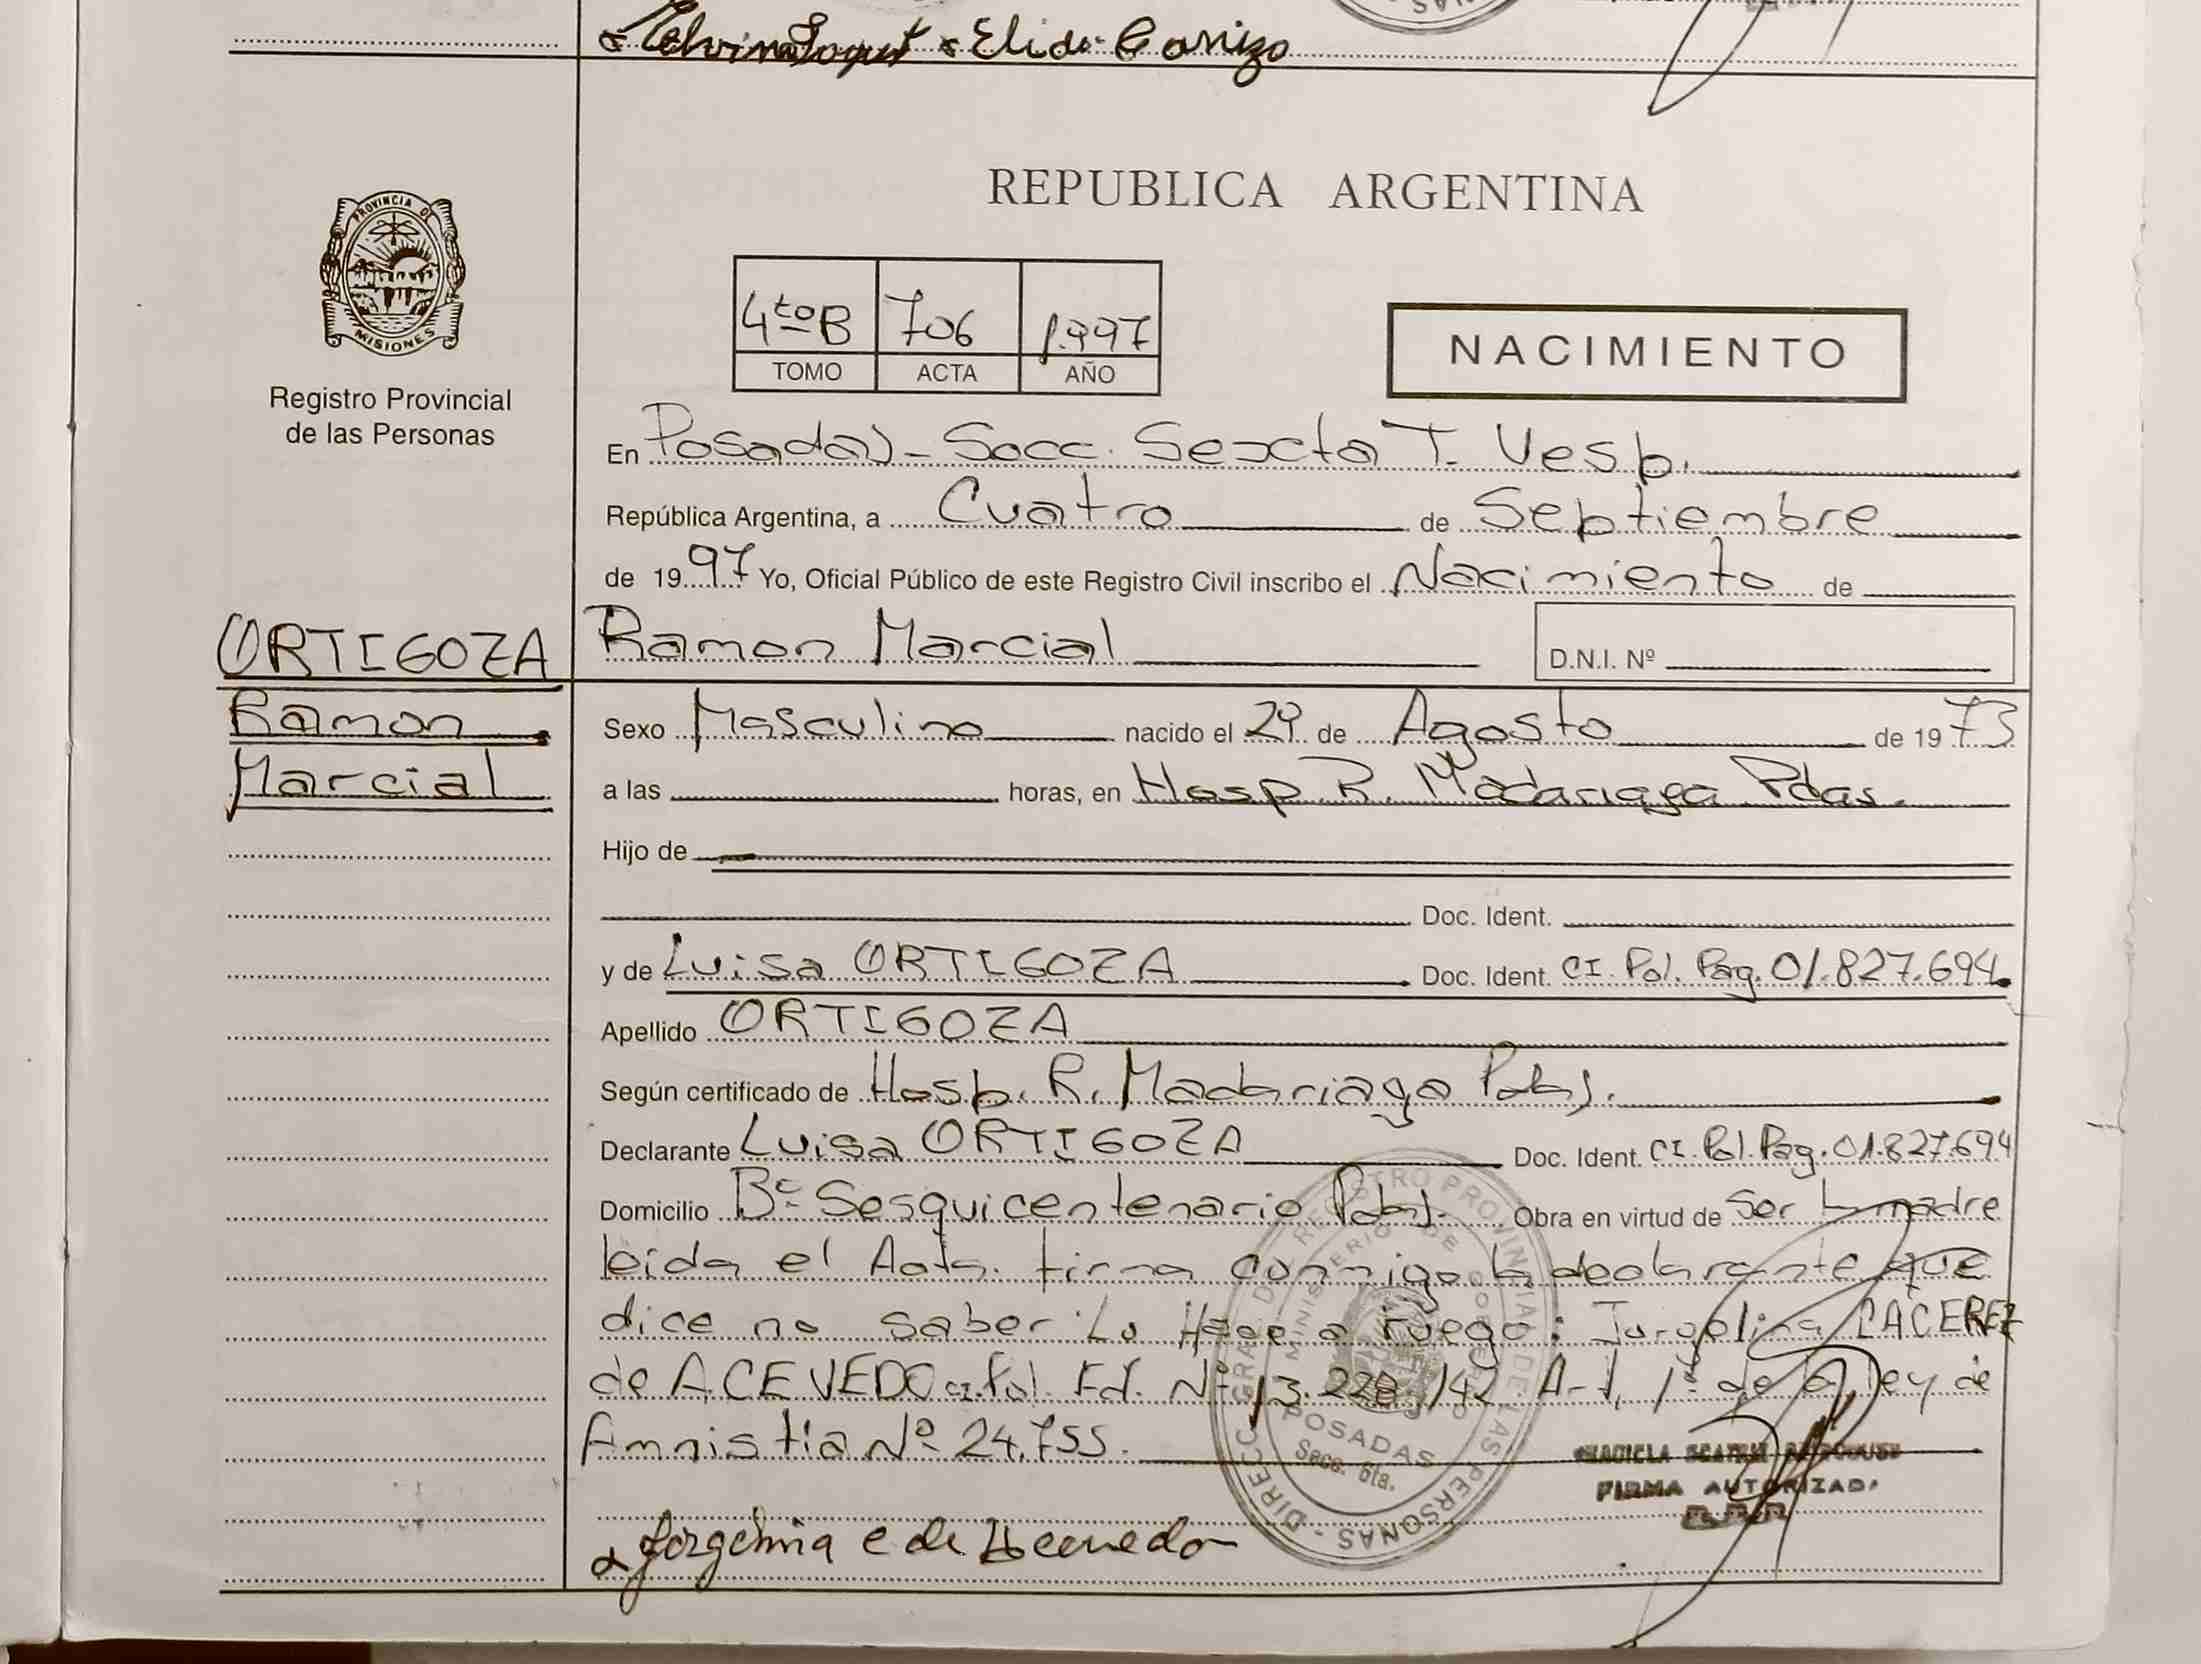 Elida Carrizo
PROVINCIA DE
MISIONES
Registro Provincial
de las Personas
REPUBLICA ARGENTINA
4to B 706 1.997
TOMO ACTA AÑO
NACIMIENTO
En Posadas - Secc. Sexta T. Vesp.
República Argentina, a Cuatro de Septiembre
de 1997 Yo, Oficial Público de este Registro Civil inscribo el Nacimiento de
ORTIGOZA Ramon Marcial D.N.I. Nº
Ramon
Marcial
Sexo Masculino nacido el 29 de Agosto de 1973
a las horas, en Hosp R. Madariaga Pdas.
Hijo de
Doc. Ident.
y de Luisa ORTIGOZA Doc. Ident. CI. Pol. Pag. 01.827.694.
Apellido ORTIGOZA
Según certificado de Hosp. R. Madariaga Pdas.
Declarante Luisa ORTIGOZA Doc. Ident. CI. Pol. Pag. 01.827.694
Domicilio Bº Sesquicentenario Pdas. Obra en virtud de ser la madre
leida el Acta. firma conmigo la declarante que
dice no saber Lo Hace a ruego: Jorgelina CACEREZ
de ACEVEDO CI. Pol. Fd. Nº 13.228.142 Art. 1º de la Ley de
Amnistia Nº 24.755.
DIRECC. GRAL DE REGISTRO PROVINCIAL DE LAS PERSONAS
MINISTERIO DE GOBIERNO
POSADAS
Secc. 6ta.
FIRMA AUTORIZADA
Jorgelina C de Acevedo